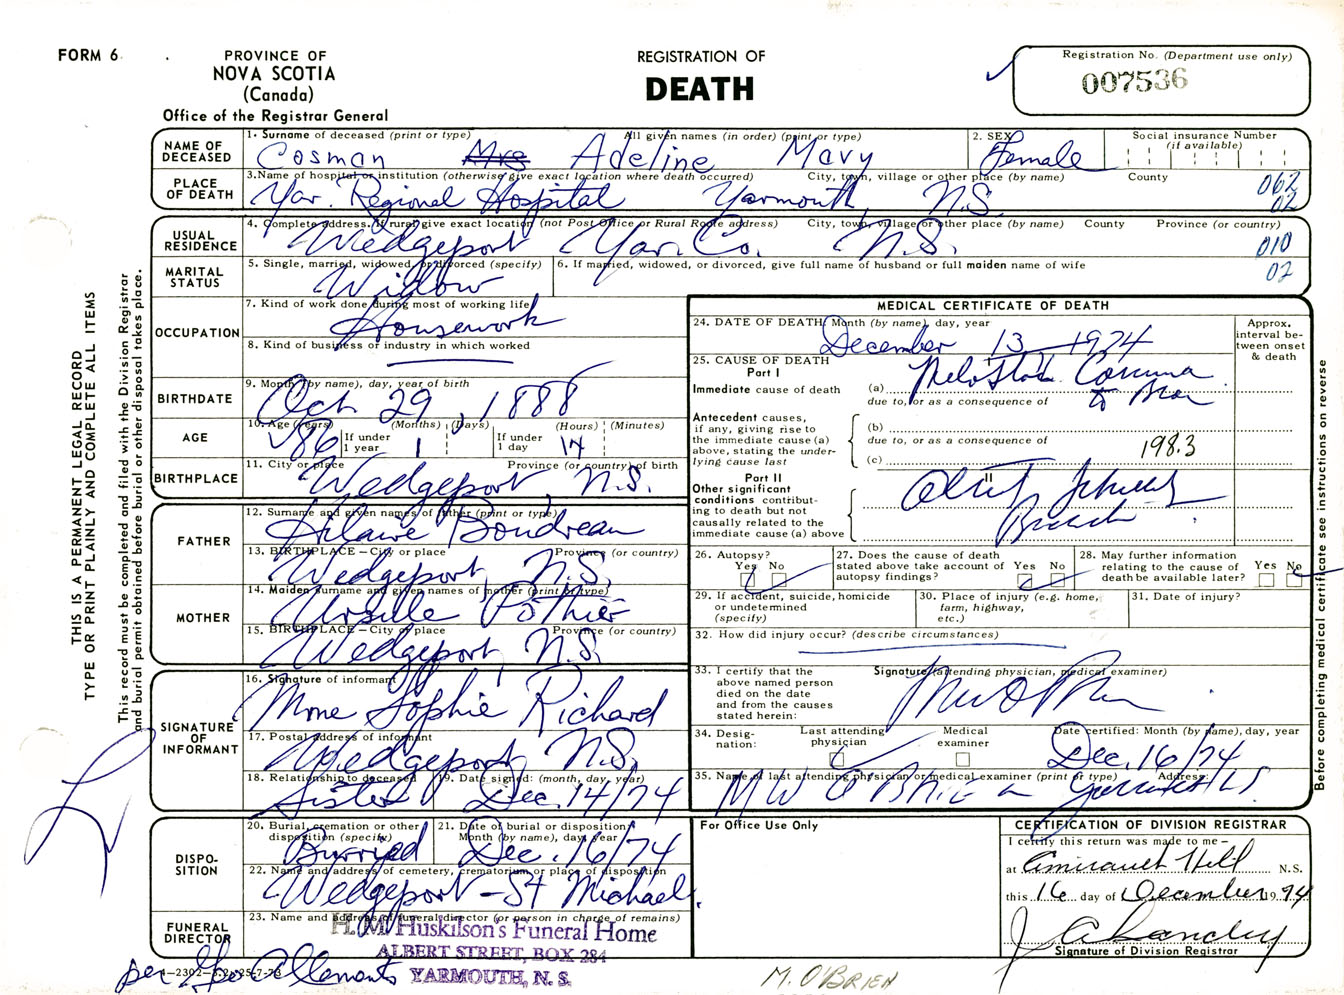 FORM 6
PROVINCE OF
NOVA SCOTIA
(Canada)
Office of the Registrar General
REGISTRATION OF
DEATH
Registration No. (Department use only)
007536
THIS IS A PERMANENT LEGAL RECORD
TYPE OR PRINT PLAINLY AND COMPLETE ALL ITEMS
This record must be completed and filed with the Division Registrar
and burial permit obtained before burial or other disposal takes place.
NAME OF DECEASED
1. Surname of deceased (print or type) All given names (in order) (print or type)
Cosman Mrs Adeline Mary
2. SEX
Female
Social insurance Number
(if available)
PLACE OF DEATH
3. Name of hospital or institution (otherwise give exact location where death occurred) City, town, village or other place (by name) County
Yar. Regional Hospital Yarmouth, N.S.
062
02
USUAL RESIDENCE
4. Complete address. If rural give exact location (not Post Office or Rural Route address) City, town, village or other place (by name) County Province (or country)
Wedgeport Yar. Co. N.S.
010
02
MARITAL STATUS
5. Single, married, widowed, or divorced (specify)
Widow
6. If married, widowed, or divorced, give full name of husband or full maiden name of wife
OCCUPATION
7. Kind of work done during most of working life
Housework
8. Kind of business or industry in which worked
BIRTHDATE
9. Month (by name), day, year of birth
Oct. 29, 1888
AGE
10. Age (years) (Months) (Days) (Hours) (Minutes)
86 If under 1 year 1 If under 1 day 14
BIRTHPLACE
11. City or place Province (or country) of birth
Wedgeport, N.S.
FATHER
12. Surname and given names of father (print or type)
Hilaire Boudreau
13. BIRTHPLACE – City or place Province (or country)
Wedgeport, N.S.
MOTHER
14. Maiden surname and given names of mother (print or type)
Ursille Pothier
15. BIRTHPLACE – City or place Province (or country)
Wedgeport, N.S.
SIGNATURE OF INFORMANT
16. Signature of informant
Mme Sophie Richard
17. Postal address of informant
Wedgeport, N.S.
18. Relationship to deceased
Sister
19. Date signed: (month, day, year)
Dec. 14/74
DISPOSITION
20. Burial, cremation or other disposition (specify)
Burried
21. Date of burial or disposition Month (by name), day, year
Dec. 16/74
22. Name and address of cemetery, crematorium or place of disposition
Wedgeport - St Michael
FUNERAL DIRECTOR
23. Name and address of funeral director (or person in charge of remains)
H. M. Huskilson's Funeral Home
ALBERT STREET, BOX 284
YARMOUTH, N. S.
MEDICAL CERTIFICATE OF DEATH
24. DATE OF DEATH: Month (by name), day, year
December 13 1974
Approx. interval between onset & death
25. CAUSE OF DEATH
Part I
Immediate cause of death
(a)
due to, or as a consequence of
Antecedent causes, if any, giving rise to the immediate cause (a) above, stating the underlying cause last
(b)
due to, or as a consequence of
(c)
198.3
Part II
Other significant conditions contributing to death but not causally related to the immediate cause (a) above
II
26. Autopsy?
Yes No
27. Does the cause of death stated above take account of autopsy findings?
Yes No
28. May further information relating to the cause of death be available later?
Yes No
29. If accident, suicide, homicide or undetermined (specify)
30. Place of injury (e.g. home, farm, highway, etc.)
31. Date of injury?
32. How did injury occur? (describe circumstances)
33. I certify that the above named person died on the date and from the causes stated herein:
Signature (attending physician, medical examiner)
34. Designation:
Last attending physician
Medical examiner
Date certified: Month (by name), day, year
Dec. 16/74
35. Name of last attending physician or medical examiner (print or type) Address:
M W O'Brien
Before completing medical certificate see instructions on reverse
For Office Use Only
CERTIFICATION OF DIVISION REGISTRAR
I certify this return was made to me –
at Amirault Hill N.S.
this 16 day of December 1974
Signature of Division Registrar
M. O'BRIEN